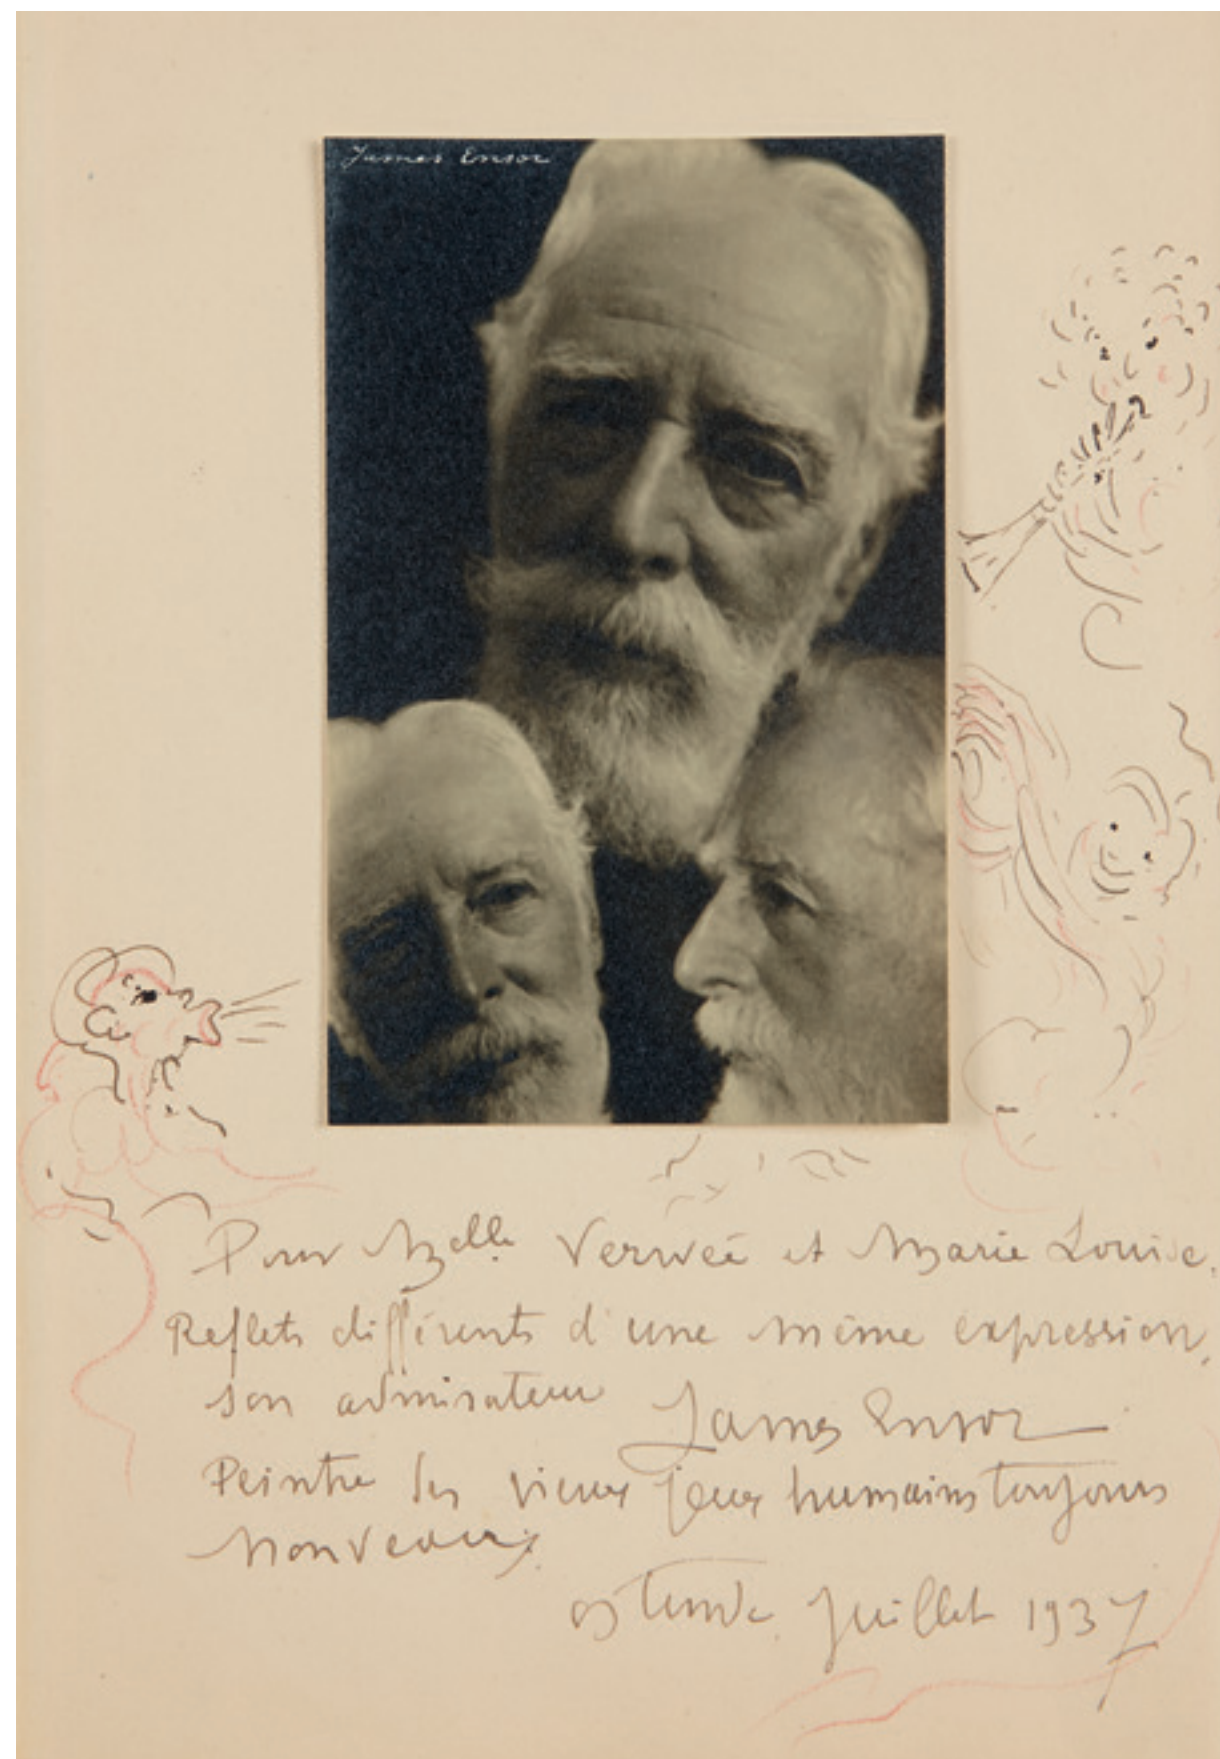 James Ensor
Pour Melle Verwée et Marie Louise.
Reflets différents d'une même expression,
son admirateur James Ensor
Peintre les vieux jeux humains toujours
nouveaux.
Ostende Juillet 1937